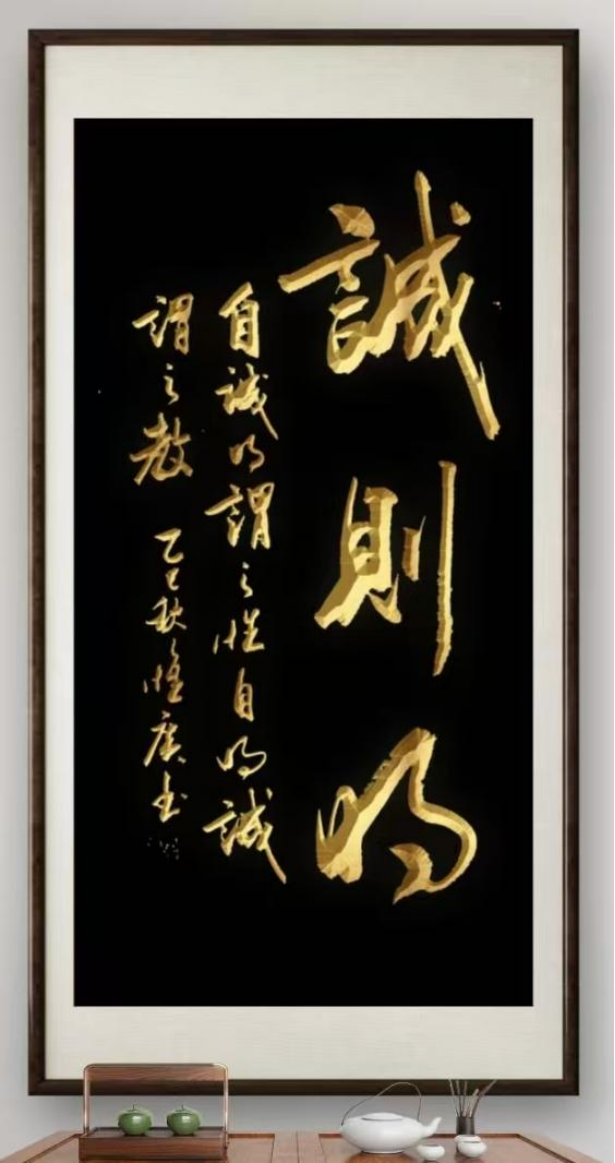 誠則明
自誠明謂之性自明誠
謂之教 乙巳秋惟廣書